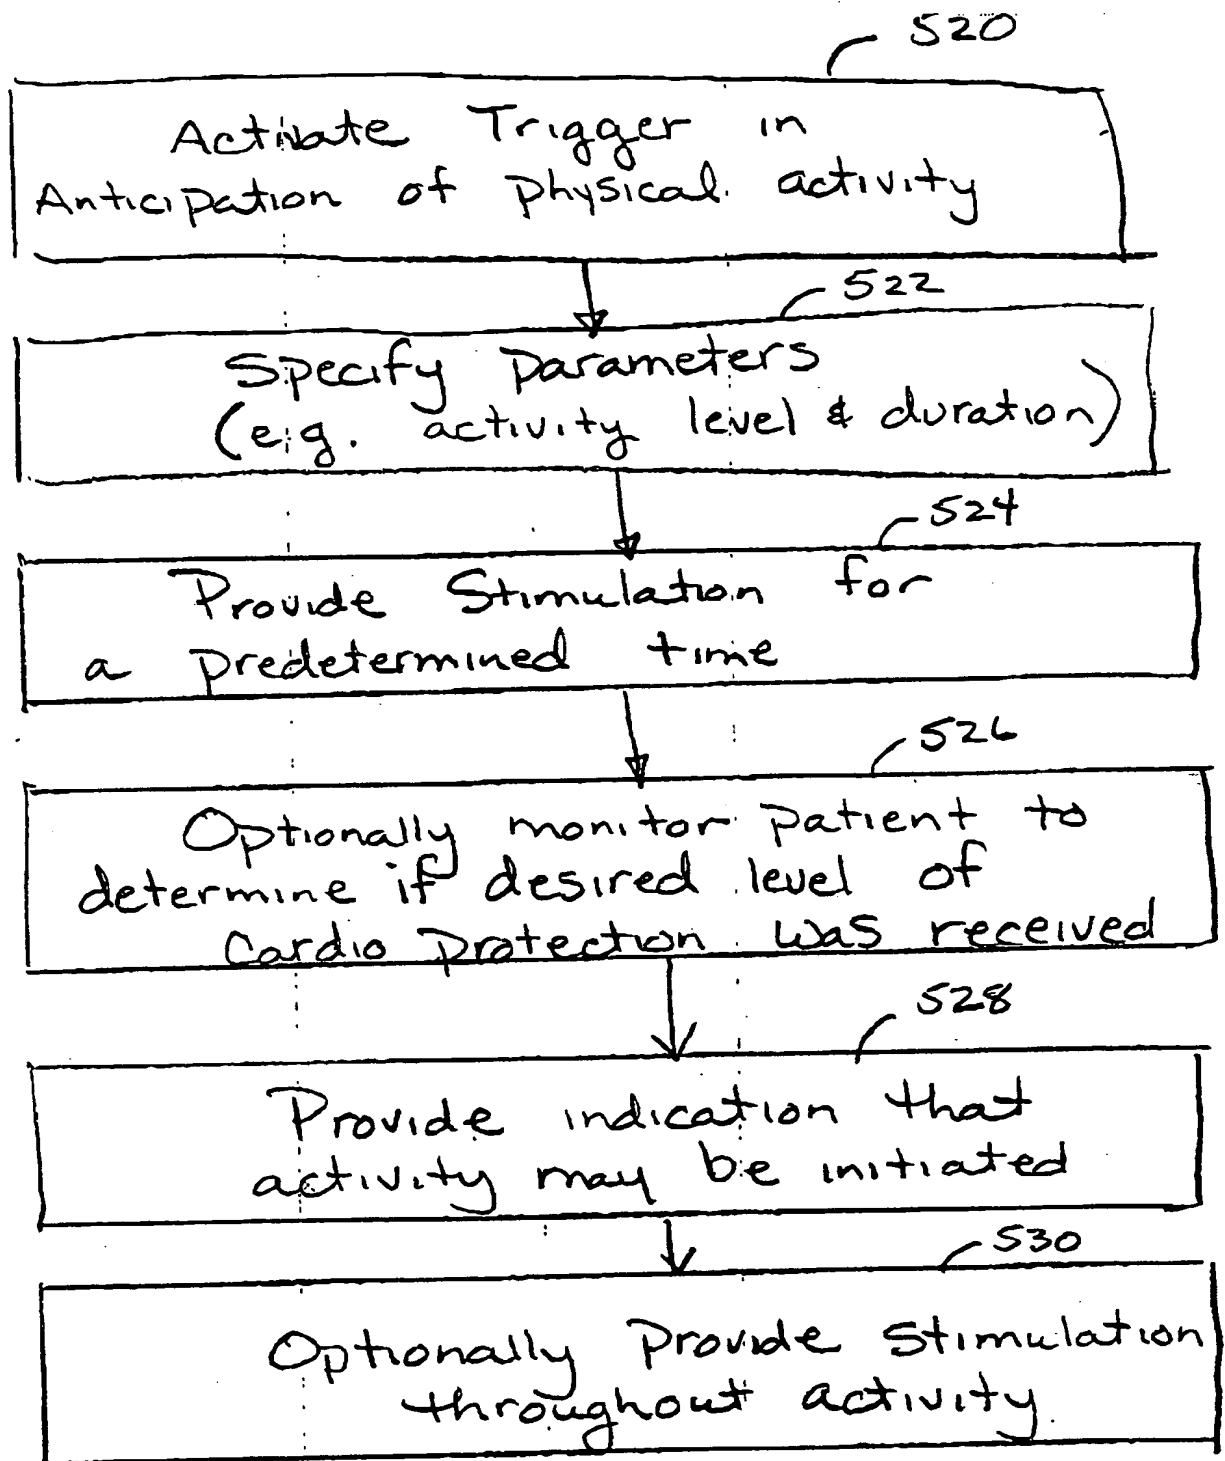 520
Activate Trigger in
Anticipation of physical activity
522
Specify Parameters
(e.g. activity level & duration)
524
Provide Stimulation for
a predetermined time
526
Optionally monitor patient to
determine if desired level of
Cardio protection was received
528
Provide indication that
activity may be initiated
530
Optionally Provide Stimulation
throughout activity